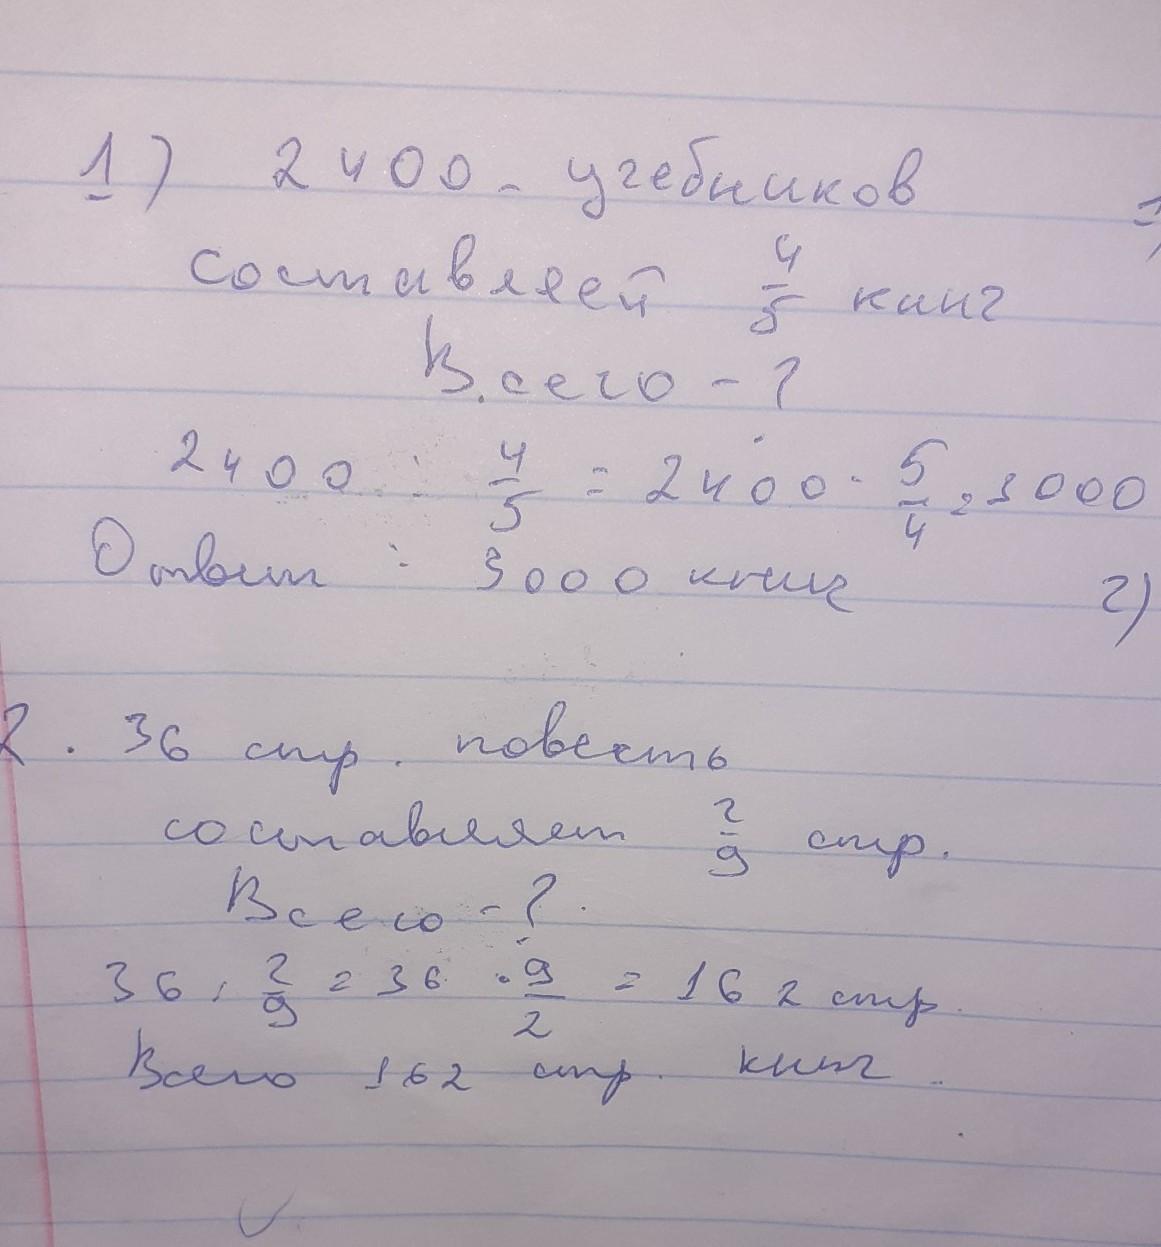 1) 2400 - учебников
составляей 4/5 кинг
Всего - ?
2400 : 4/5 = 2400 · 5/4 = 3000
Ответ : 3000 книг
2)
2. 36 стр. повесть
составляет 2/9 стр.
Всего - ?
36 : 2/9 = 36 · 9/2 = 162 стр.
Всего 162 стр. кинг.